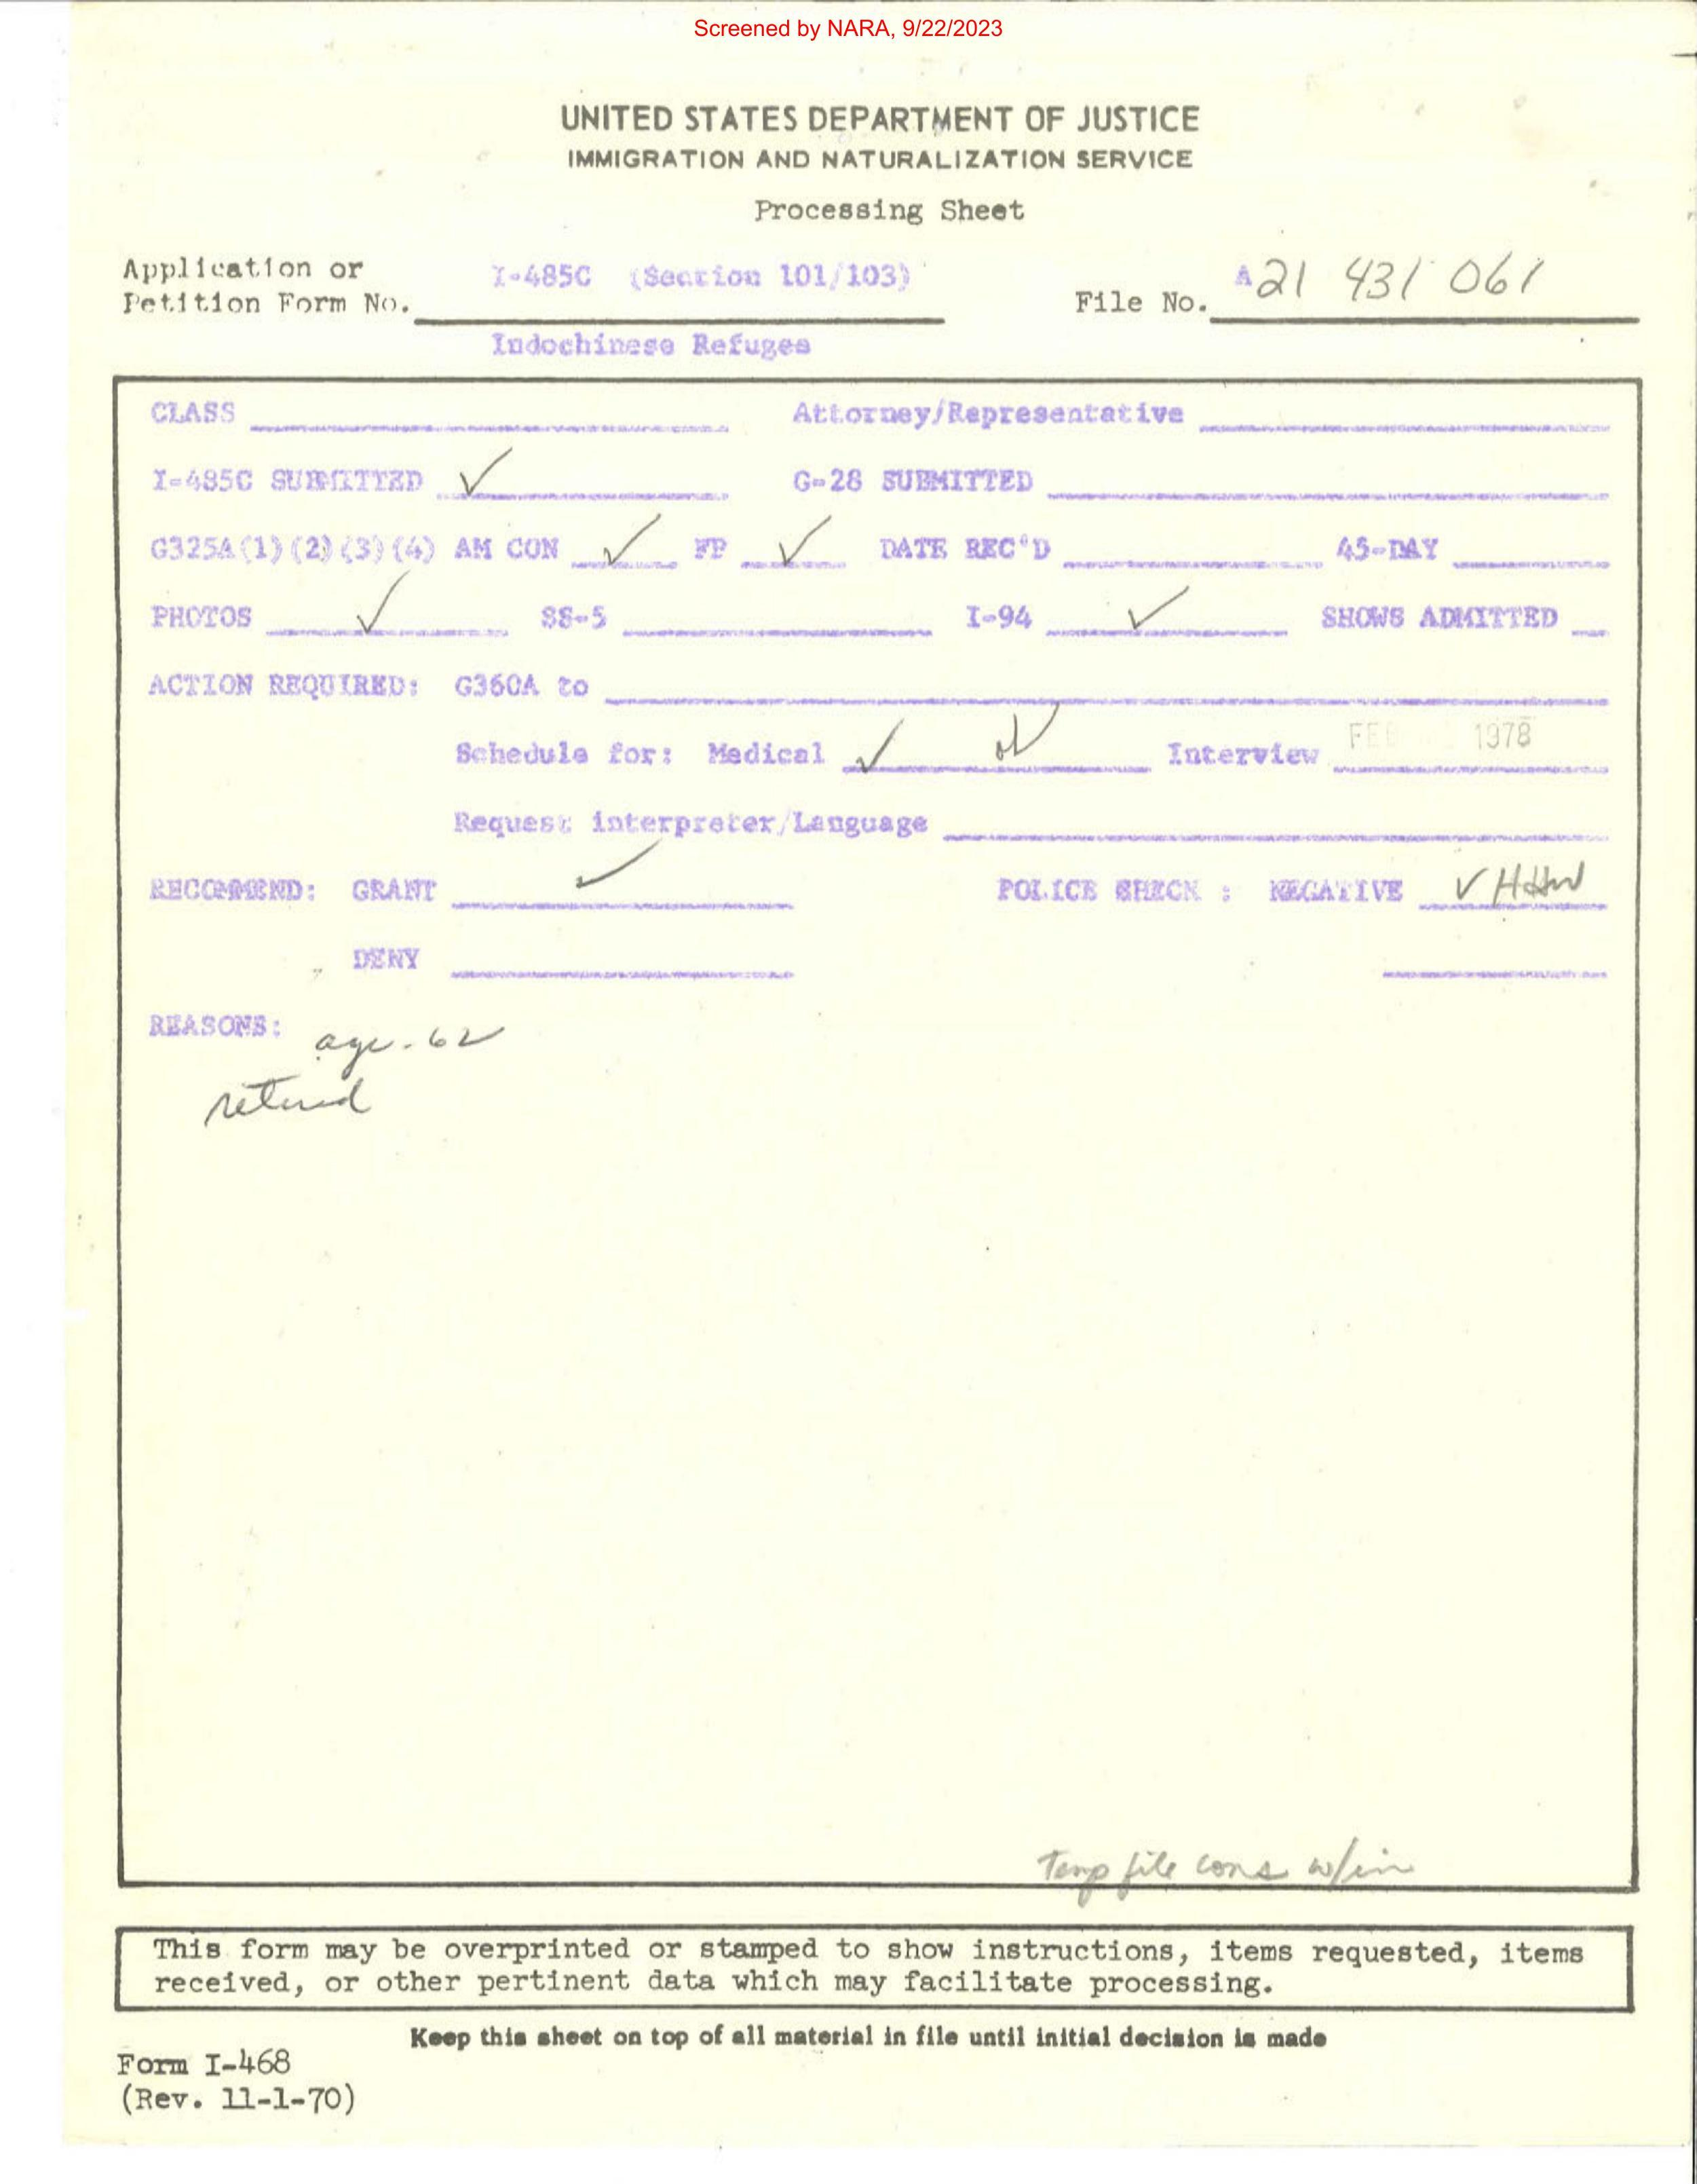 Screened by NARA, 9/22/2023
UNITED STATES DEPARTMENT OF JUSTICE
IMMIGRATION AND NATURALIZATION SERVICE
Processing Sheet
Application or
Petition Form No. I-485C (Section 101/103)
File No. A21 431 061
Indochinese Refugee
CLASS Attorney/Representative
I-485C SUBMITTED ✓ G-28 SUBMITTED
G325A(1)(2)(3)(4) AM CON ✓ FP ✓ DATE REC'D 45-DAY
PHOTOS ✓ SS-5 I-94 ✓ SHOWS ADMITTED
ACTION REQUIRED: G360A to
Schedule for: Medical ✓ Interview FEB 1978
Request interpreter/Language
RECOMMEND: GRANT ✓ POLICE CHECK : NEGATIVE ✓
DENY
REASONS: age. 62
retired
Temp file cons w/in
This form may be overprinted or stamped to show instructions, items requested, items
received, or other pertinent data which may facilitate processing.
Keep this sheet on top of all material in file until initial decision is made
Form I-468
(Rev. 11-1-70)